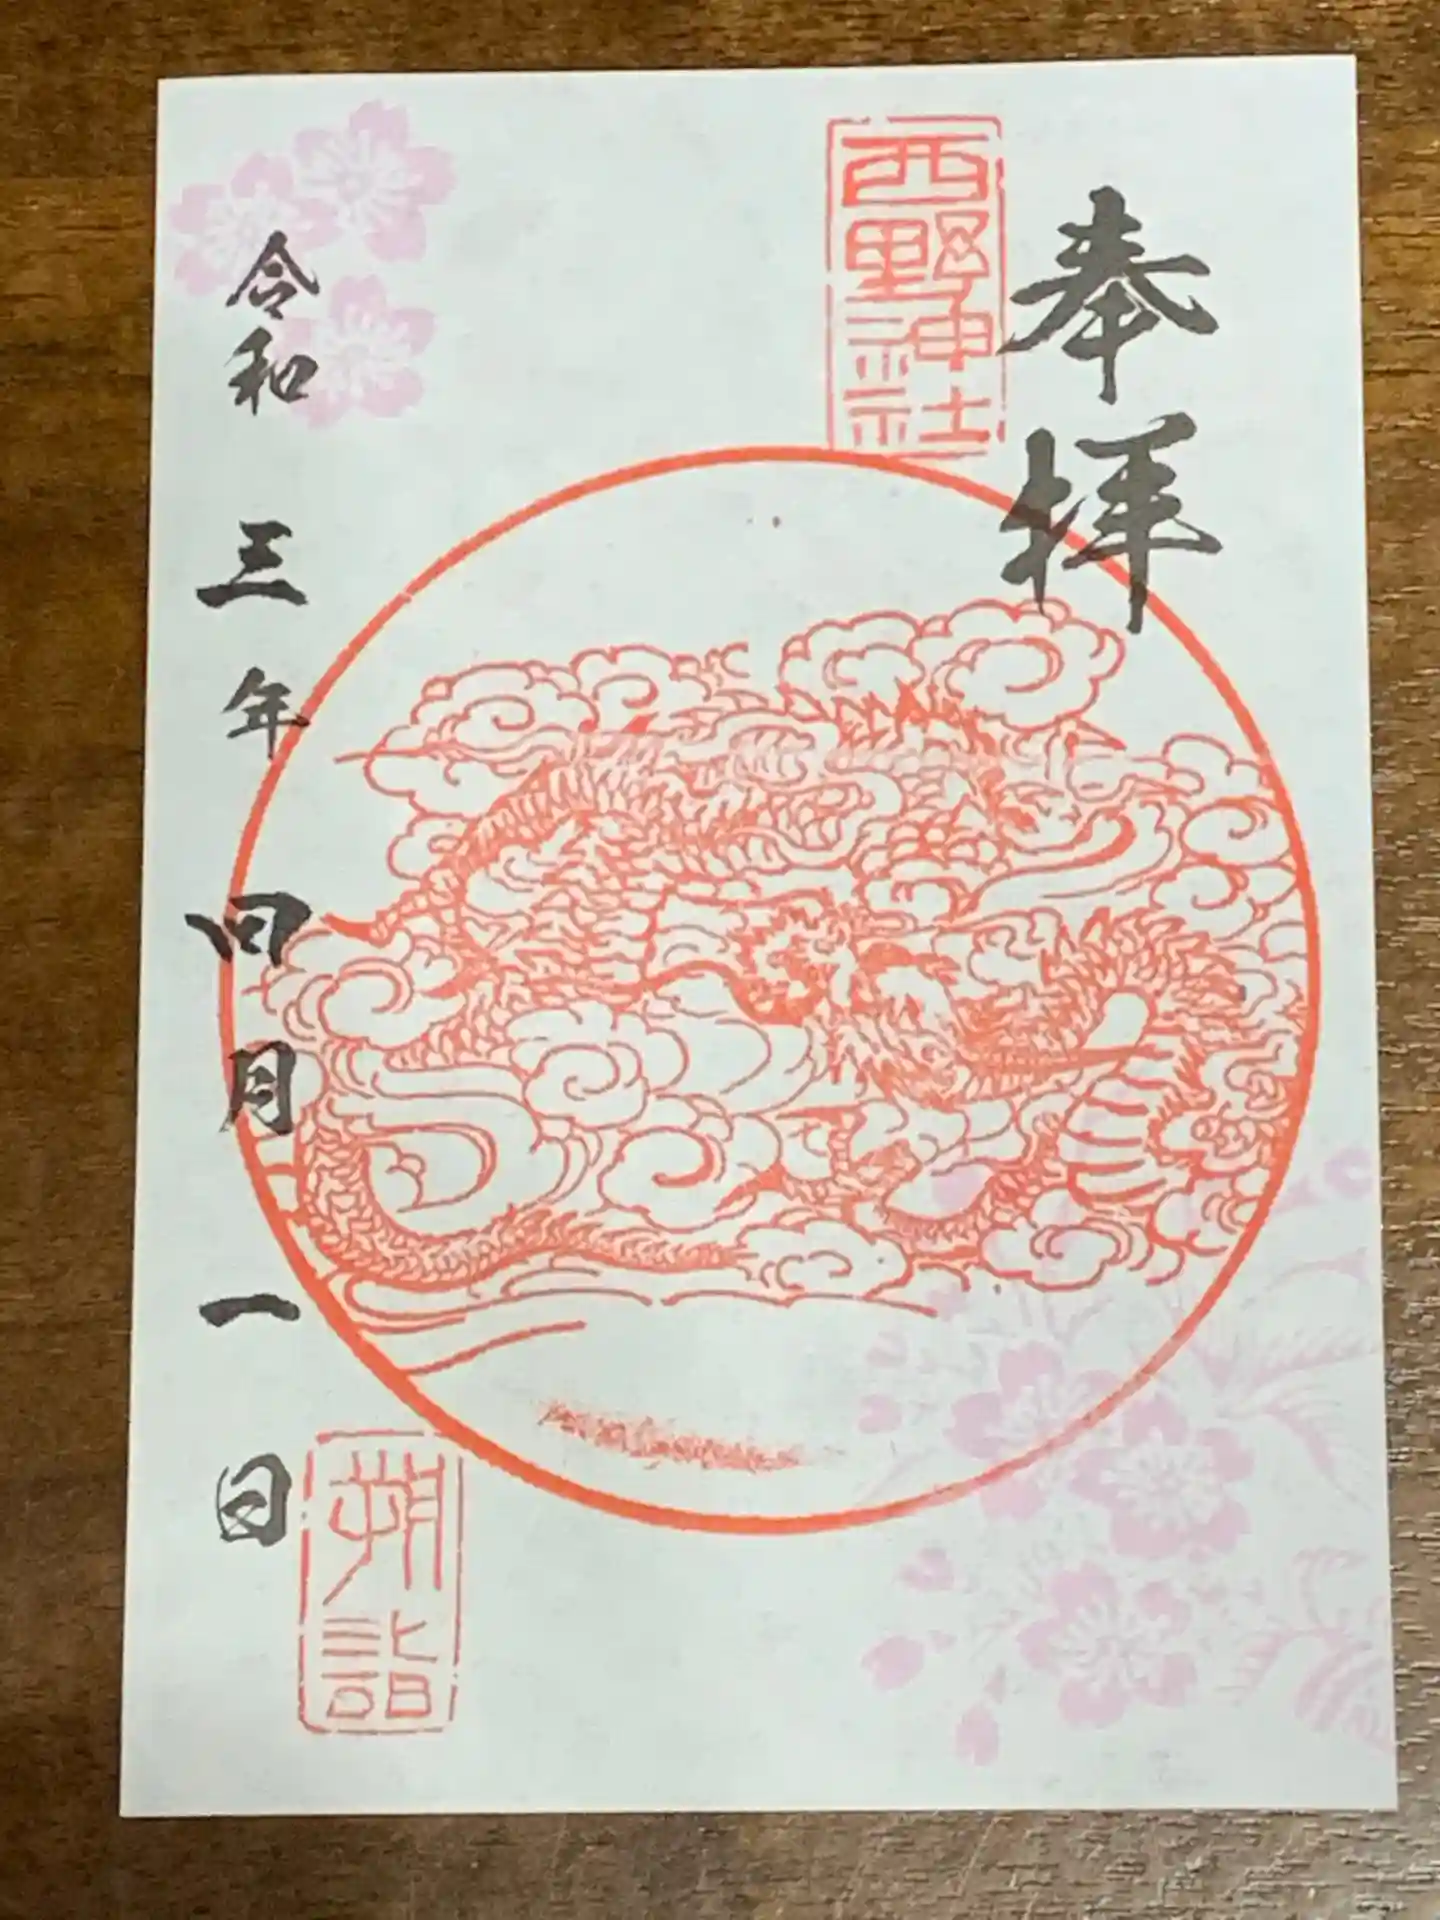 奉拝
西野神社
令和三年四月一日
朔詣